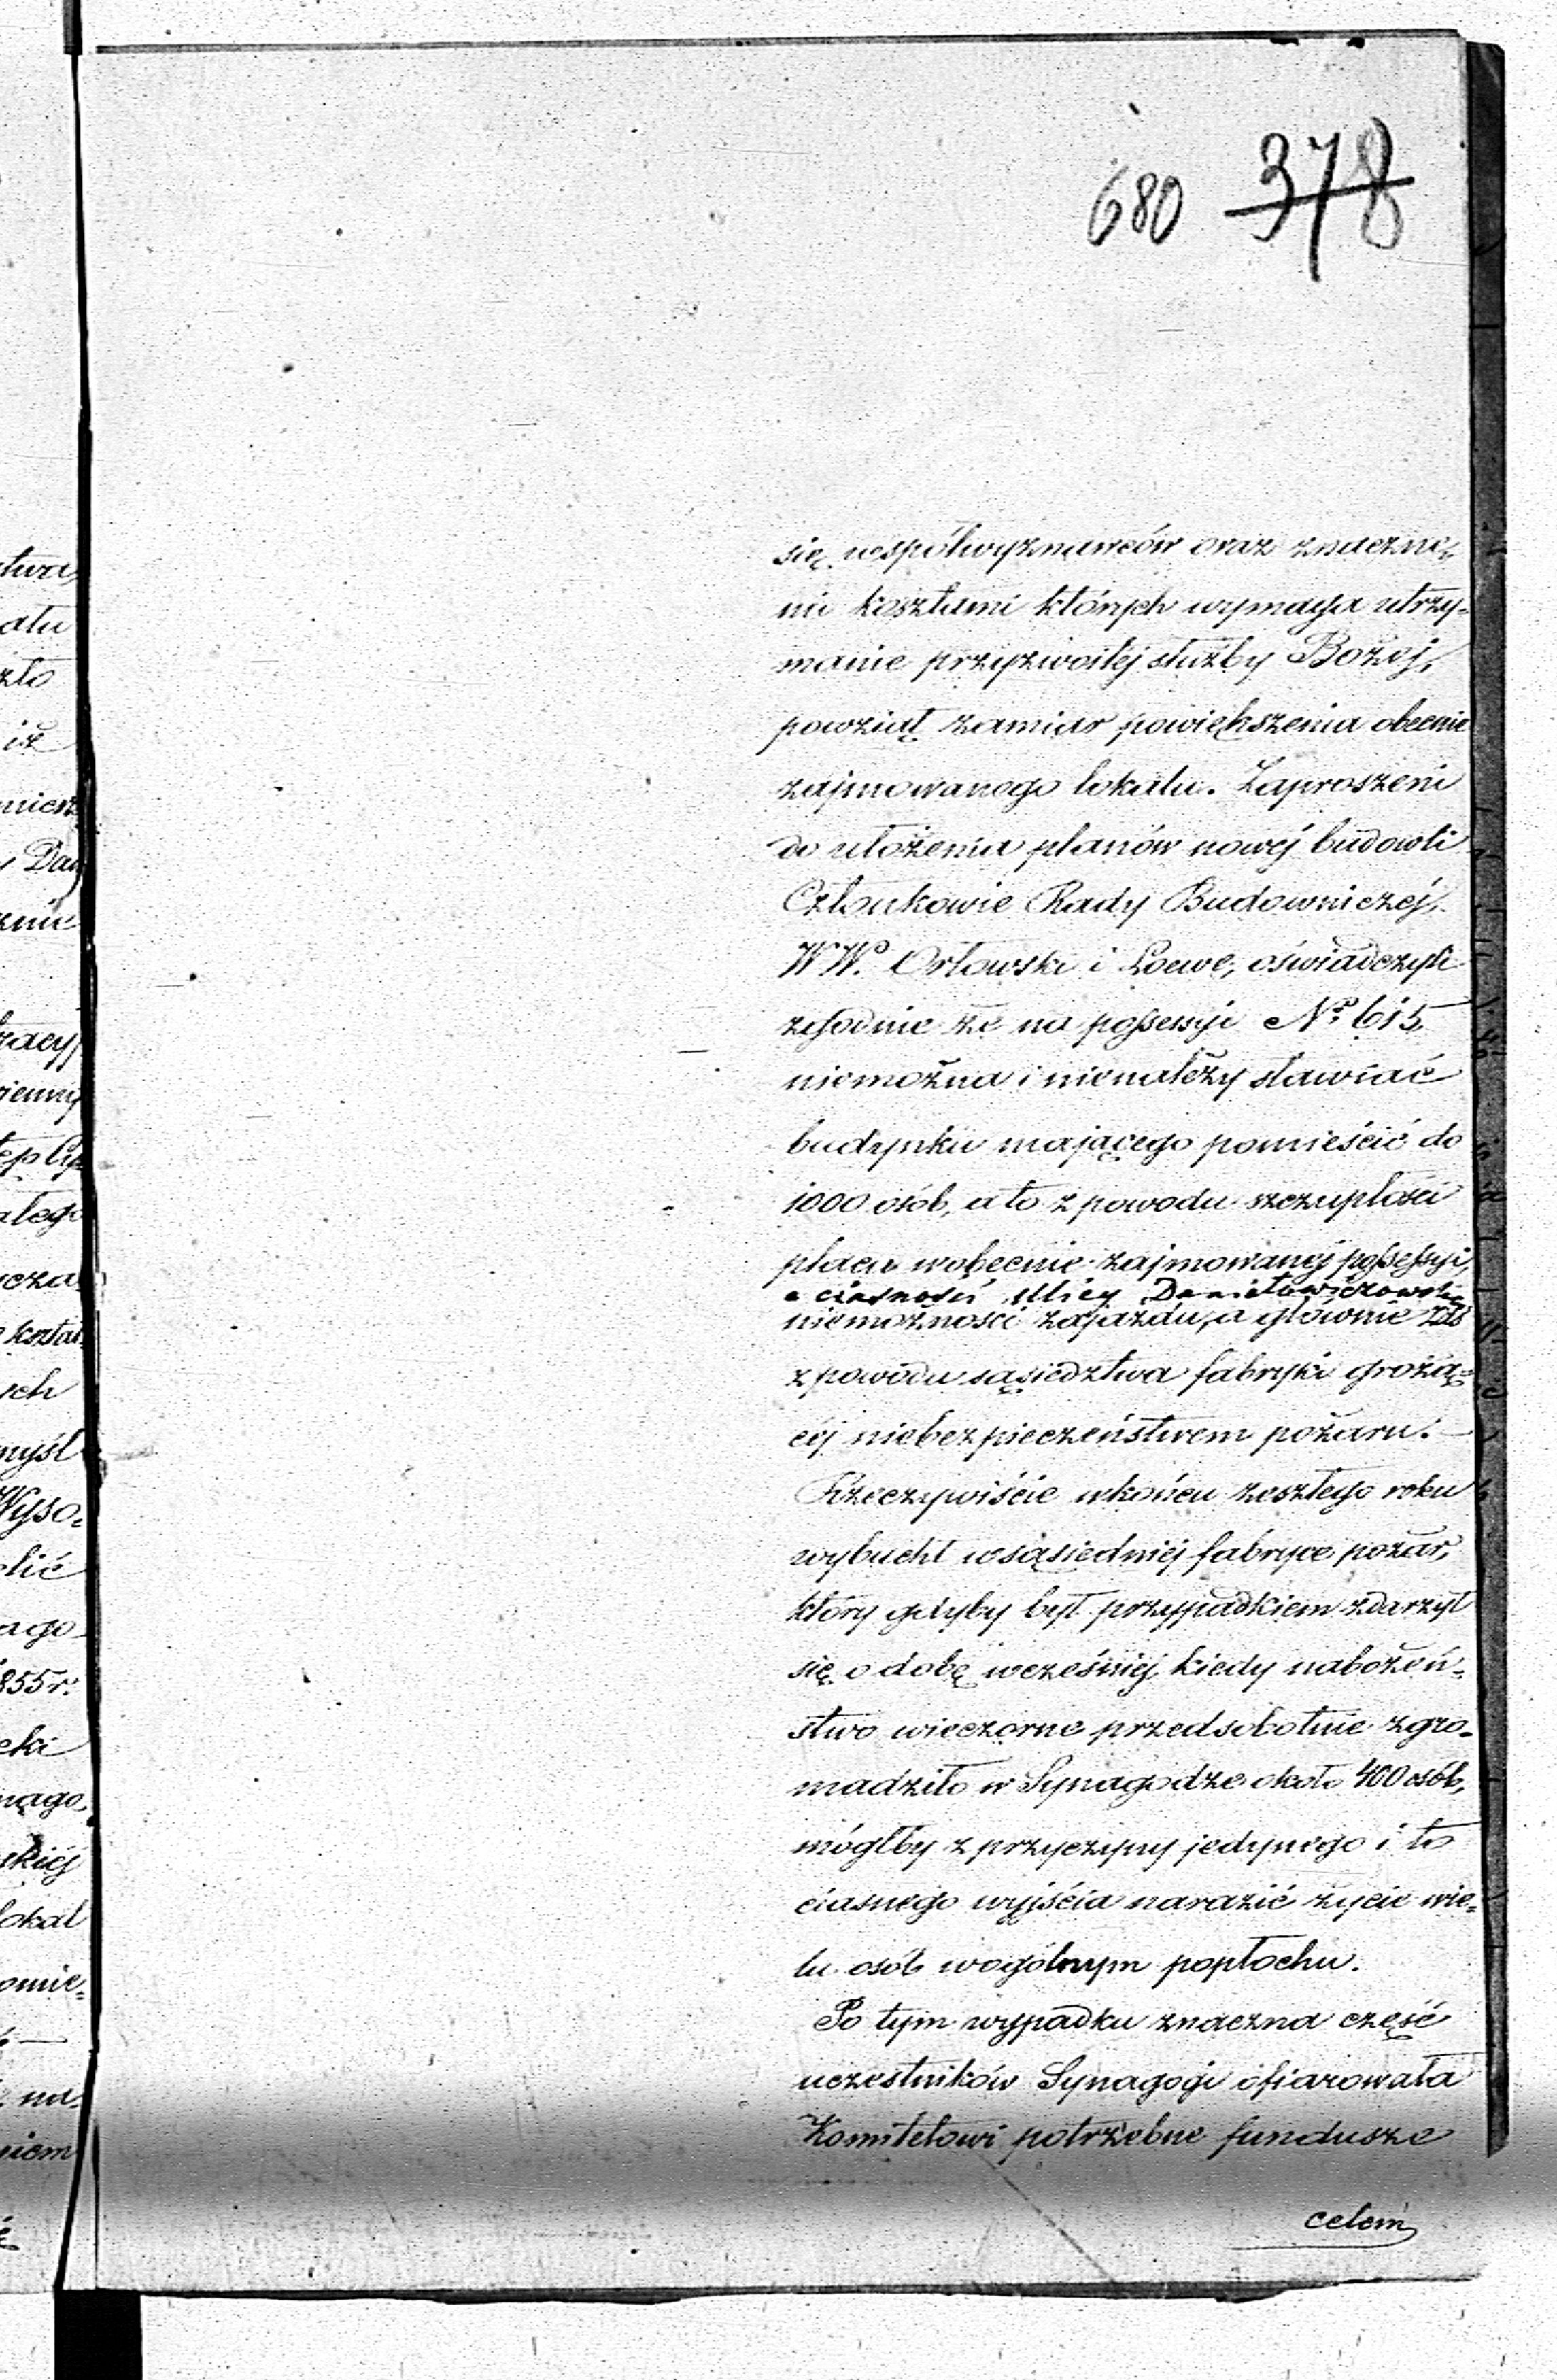 680 378
się współwyznawców oraz znaczne-
mi kosztami których wymaga utrzy-
manie przyzwoitej służby Bożej,
powziął zamiar powiększenia obecnie
zajmowanego lokalu. Zaproszeni
do ułożenia planów nowéj budowli
Członkowie Rady Budowniczéj,
WW. Orłowski i Loewe, oświadczyli
zgodnie że na possessyi No. 615
niemożna i nienależy stawiać
budynku mającego pomieścić do
1000 osób, a to z powodu szczupłości
placu wobecnie zajmowanéj possessyi,
a ciasności ulicy Daniełowiczowsk
niemożności zajazdu, a głównie zaś
z powodu sąsiedztwa fabryki grożą=
céj niebezpieczeństwem pożaru. —
Rzeczywiście wkońcu zeszłego roku
wybuchł wsąsiedniéj fabryce pożar,
który gdyby był przypadkiem zdarzył
się o dobę wcześniéj, kiedy nabożeń=
stwo wieczorne przedsobotnie zgro=
madziło w Synagodze około 400 osób,
mógłby z przyczyny jedynego i to
ciasnego wyjścia narazić życie wie=
lu osób wogólnym popłochu.
Po tym wypadku znaczna część
uczestników Synagogi ofiarowała
Komitetowi potrzebne fundusze
celem
twa,
atu
zło
iż
Dan
ych
myśl
Wyso=
ago
855 r.
nago,
lokal
omie=
na
niem